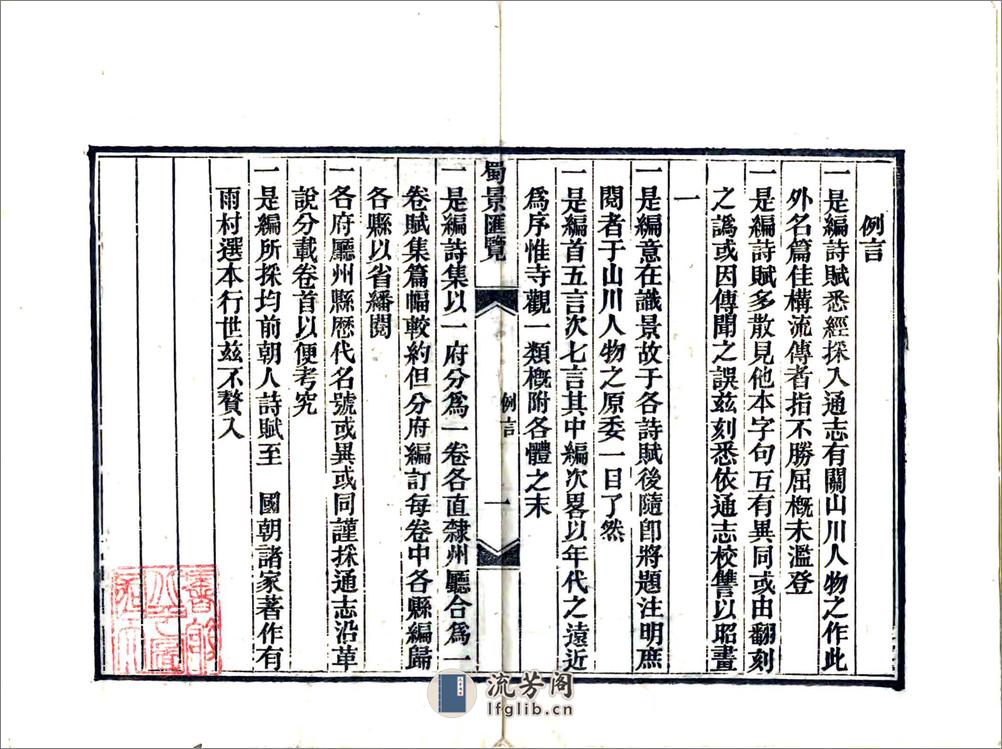 例言
一是編詩賦悉經採入通志有關山川人物之作此
外名篇佳構流傳者指不勝屈槪未濫登
一是編詩賦多散見他本字句互有異同或由翻刻
之譌或因傳聞之誤茲刻悉依通志校讐以昭畫
一
一是編意在識景故于各詩賦後隨卽將題注明庶
閱者于山川人物之原委一目了然
一是編首五言次七言其中編次畧以年代之遠近
爲序惟寺觀一類槪附各體之末
蜀景匯覽
例言
一
一是編詩集以一府分爲一卷各直隸州廳合爲一
卷賦集篇幅較約但分府編訂每卷中各縣編歸
各縣以省繙閱
一各府廳州縣歷代名號或異或同謹採通志沿革
說分載卷首以便考究
一是編所採均前朝人詩賦至　國朝諸家著作有
雨村選本行世茲不贅入
流芳阁
lfglib.cn